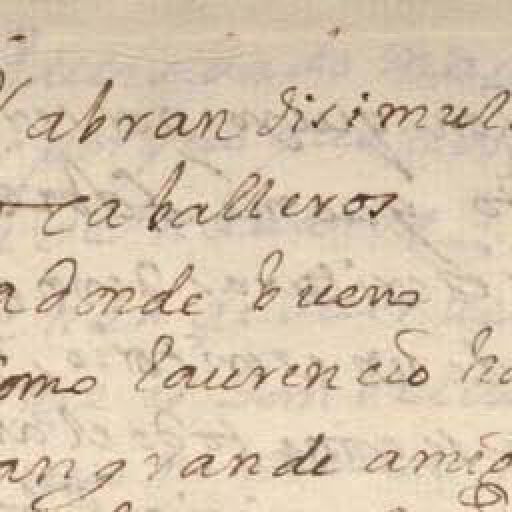 abran disimul
caballeros
adonde bueno
como laurencio ha
an grande amig